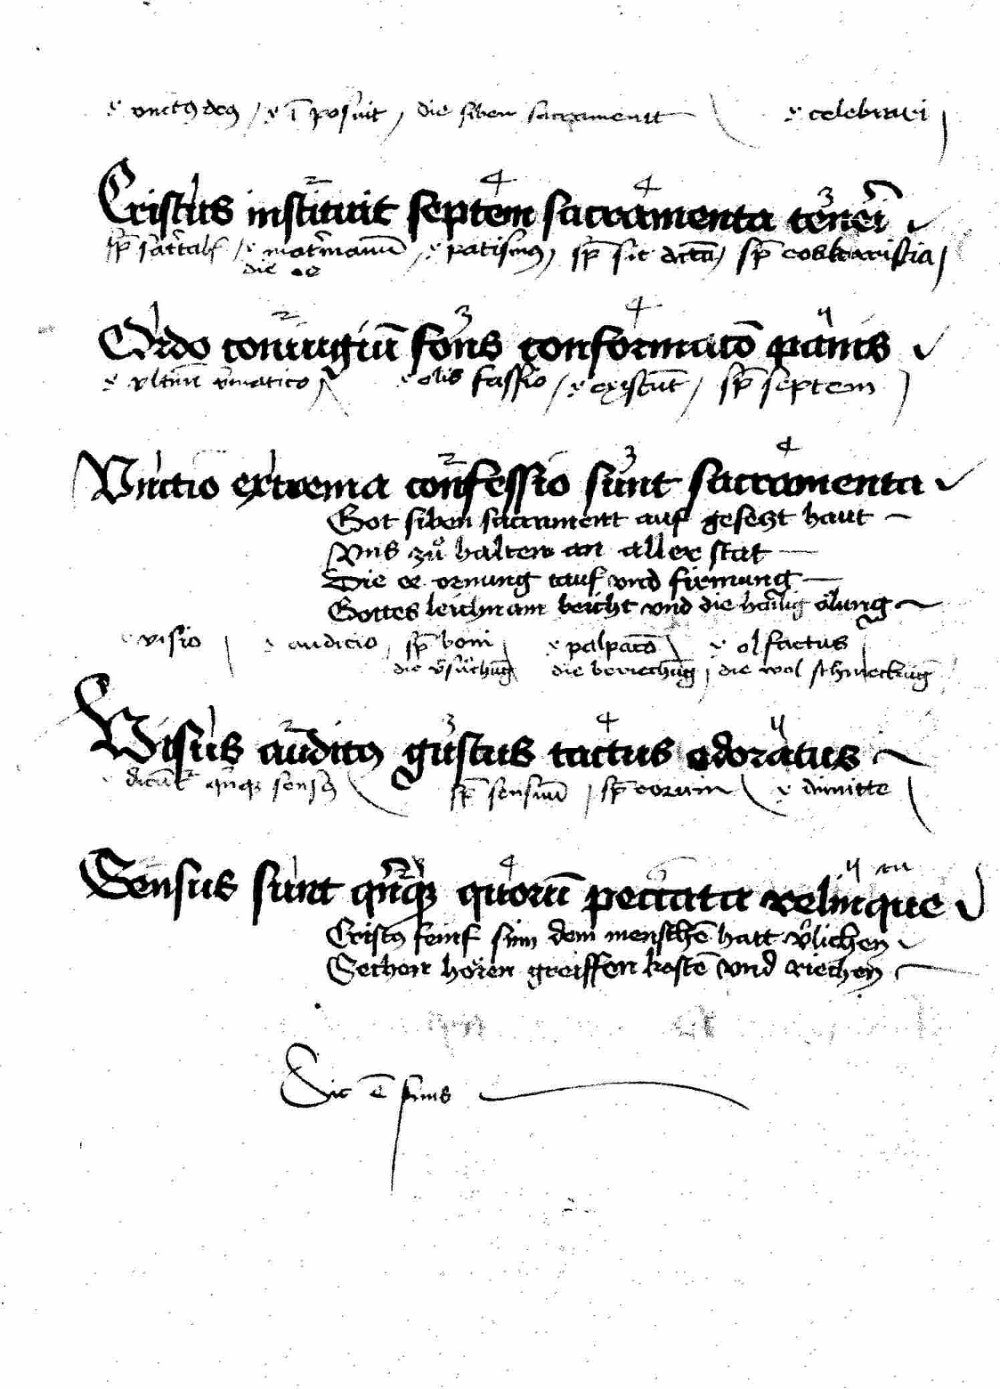 unctus deus / i posuit / die siben sacrament celebrari
Cristus instituit septem sacramenta teneri
matrimoniū / sic dictā
die ee
Ordo coniugiū fons confirmatō panis
existūt / septem
Unctio extrema confessio sunt sacramenta
Got siben sacrament auf gesetzt haut
Uns zů halten an aller stat
Die ee ornung tauf und firmung
Gottes leichnam beicht und die hailig ölung
visio audicio boni palpacō olfactus
die vsůchung die berierchung die wol schmeckung
Visus auditus gustus tactus odoratus
sensuū eorum dimitte
Sensus sunt quīque quorū peccata relinque
Cristus feinf sinn dem menschē hatt vlichen
Sechen hören greiffen kostē und riechen
Sic ē finis